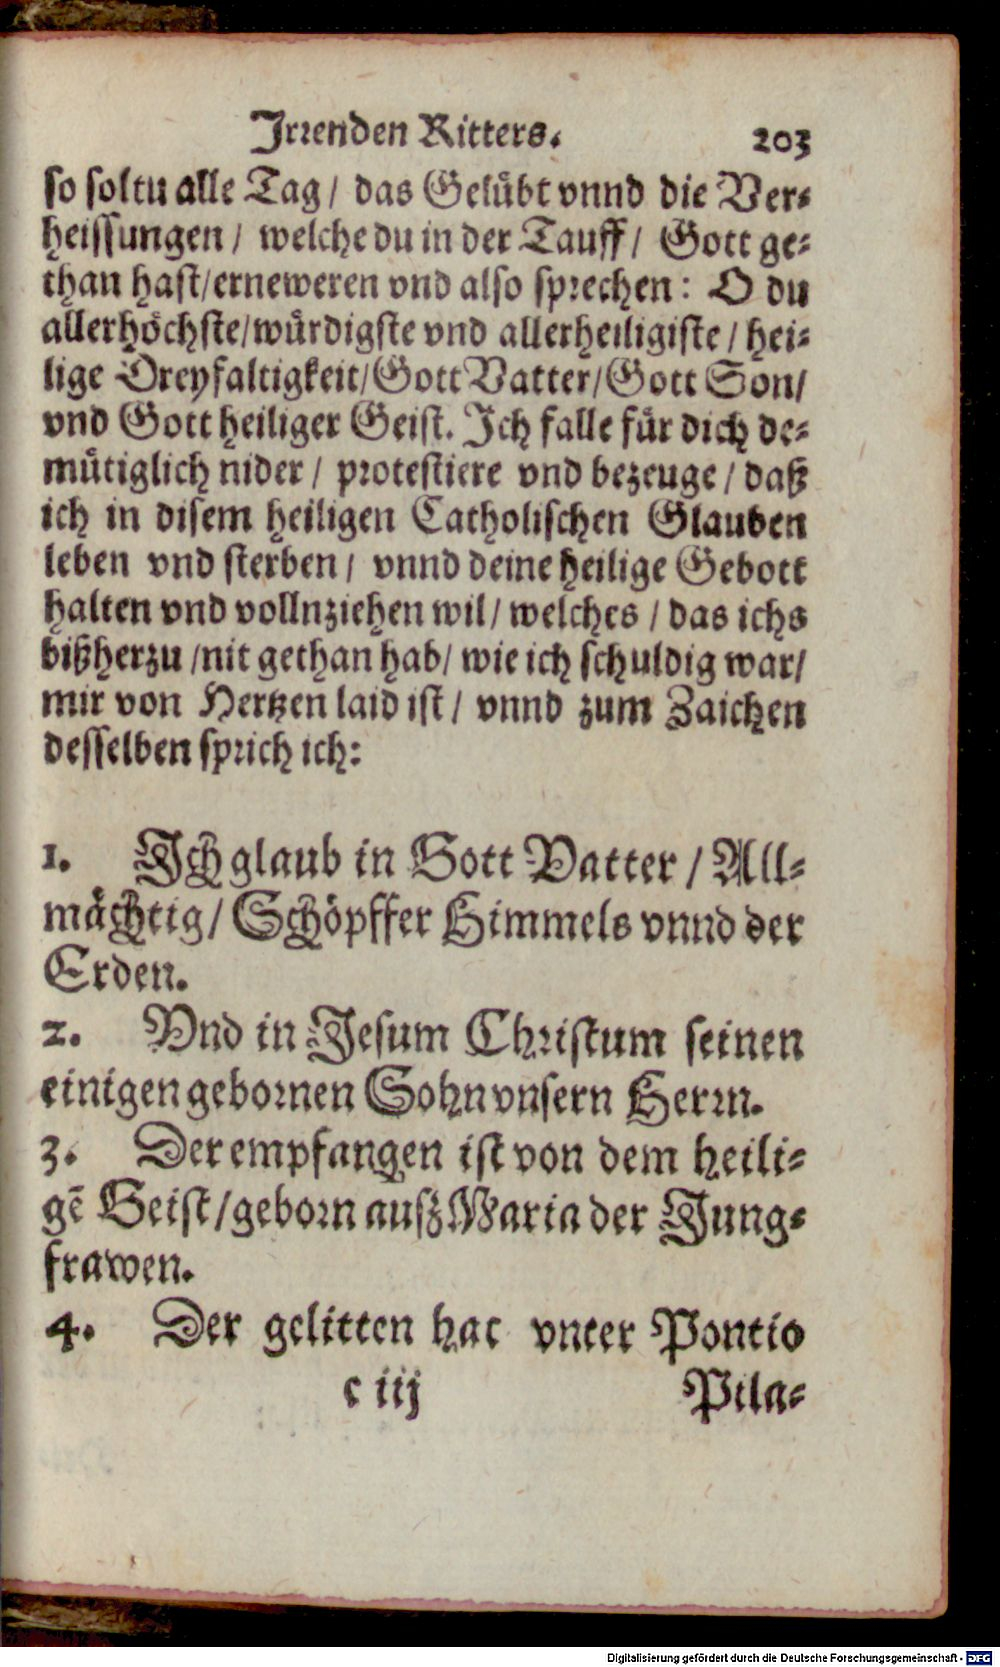 Irrenden Ritters. 203
so soltu alle Tag / das Gelübt vnnd die Ver-
heissungen / welche du in der Tauff / Gott ge-
than hast/erneweren vnd also sprechen: O du
allerhöchste/würdigste vnd allerheiligiste / hei-
lige Dreyfaltigkeit/Gott Vatter/Gott Son/
vnd Gott heiliger Geist. Ich falle für dich de-
mütiglich nider / protestiere vnd bezeuge / daß
ich in disem heiligen Catholischen Glauben
leben vnd sterben / vnnd deine heilige Gebott
halten vnd vollnziehen wil/ welches / das ichs
bißherzu /nit gethan hab/ wie ich schuldig war/
mir von Hertzen laid ist / vnnd zum Zaichen
desselben sprich ich:
1. Ich glaub in Gott Vatter / All-
mächtig/ Schöpffer Himmels vnnd der
Erden.
2. Vnd in Jesum Christum seinen
einigen gebornen Sohn vnsern Herrn.
3. Der empfangen ist von dem heili-
gē Geist/geborn auß Maria der Jung-
frawen.
4. Der gelitten hat vnter Pontio
c iij Pila-
Digitalisierung gefördert durch die Deutsche Forschungsgemeinschaft - DFG